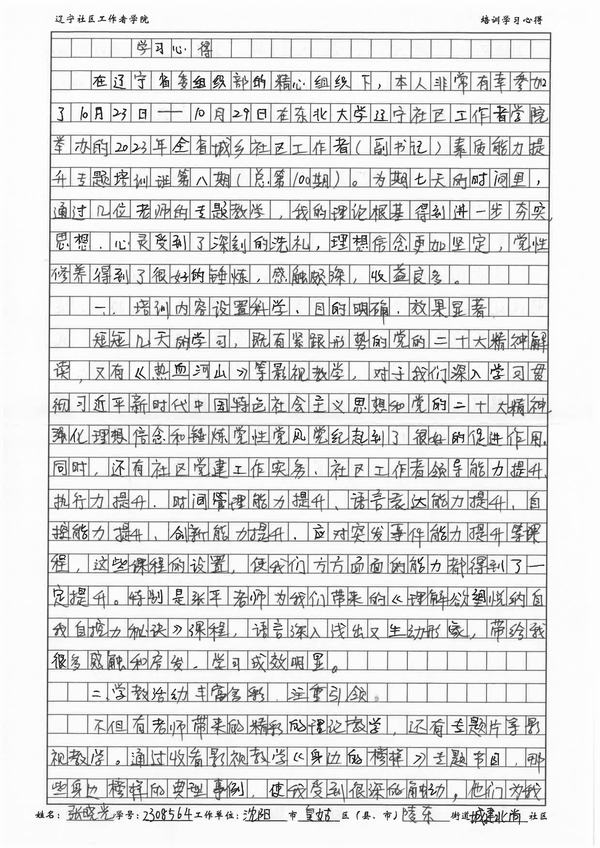 辽宁社区工作者学院 培训学习心得
学习心得
在辽宁省委组织部的精心组织下，本人非常有幸参加
了10月23日——10月29日在东北大学辽宁社区工作者学院
举办的2023年全省城乡社区工作者（副书记）素质能力提
升专题培训班第八期（总第100期）。为期七天的时间里，
通过几位老师的专题教学，我的理论根基得到进一步夯实，
思想、心灵受到了深刻的洗礼，理想信念更加坚定，党性
修养得到了很好的锤炼，感触颇深，收益良多。
一、培训内容设置科学、目的明确、效果显著
短短几天的学习，既有紧跟形势的党的二十大精神解
读，又有《热血河山》等影视教学，对于我们深入学习贯
彻习近平新时代中国特色社会主义思想和党的二十大精神，
强化理想信念和锤炼党性党风党纪起到了很好的促进作用。
同时，还有社区党建工作实务、社区工作者领导能力提升、
执行力提升、时间管理能力提升、语言表达能力提升、自
控能力提升、创新能力提升、应对突发事件能力提升等课
程，这些课程的设置，使我们方方面面的能力都得到了一
定提升。特别是张平老师为我们带来的《理解欲望悦纳自
我自控力秘诀》课程，语言深入浅出又生动形象，带给我
很多感触和启发，学习成效明显。
二、学教活动丰富多彩，注重引领。
不但有老师带来的精彩的理论教学，还有专题片等影
视教学。通过收看影视教学《身边的榜样》专题节目，那
些身边榜样的典型事例，使我受到很深的触动。他们为我
姓名：张晓光 学号：2308564 工作单位：沈阳 市 皇姑 区（县、市） 陵东 街道 城建北尚 社区